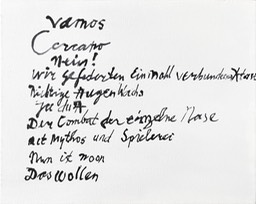 Vamos
Corrano
Nein!
Wir gefederten Einmahl verbundenen
Richtige Augen
Ja
Der Combat der einzelne Nase
mit Mythos und Spielerei
Nun ist noon
Das wollen